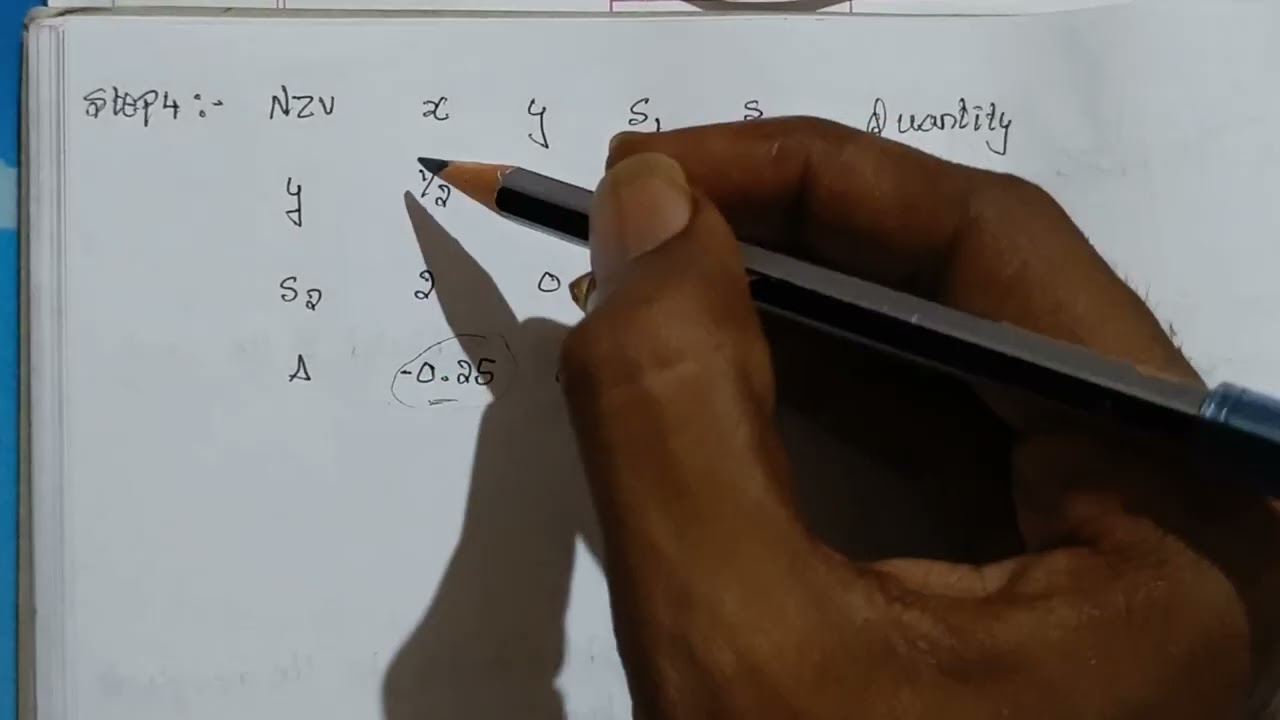 Step 4 :- NZV x y S1 S Quantity
y 1/2
S2 2 0
Δ -0.25